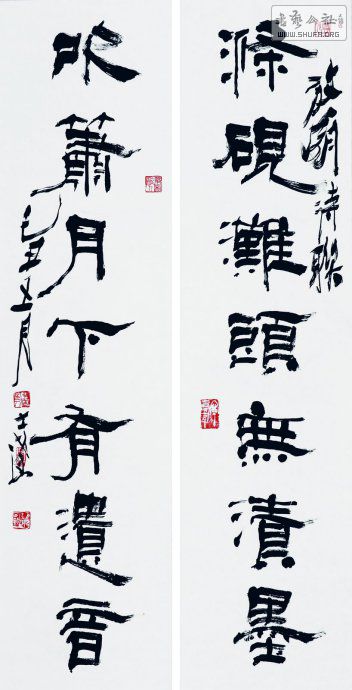 書藝公社
WWW.SHUFA.ORG
放翁詩聯
滌硯灘頭無漬墨
吹簫月下有遺音
己丑五月